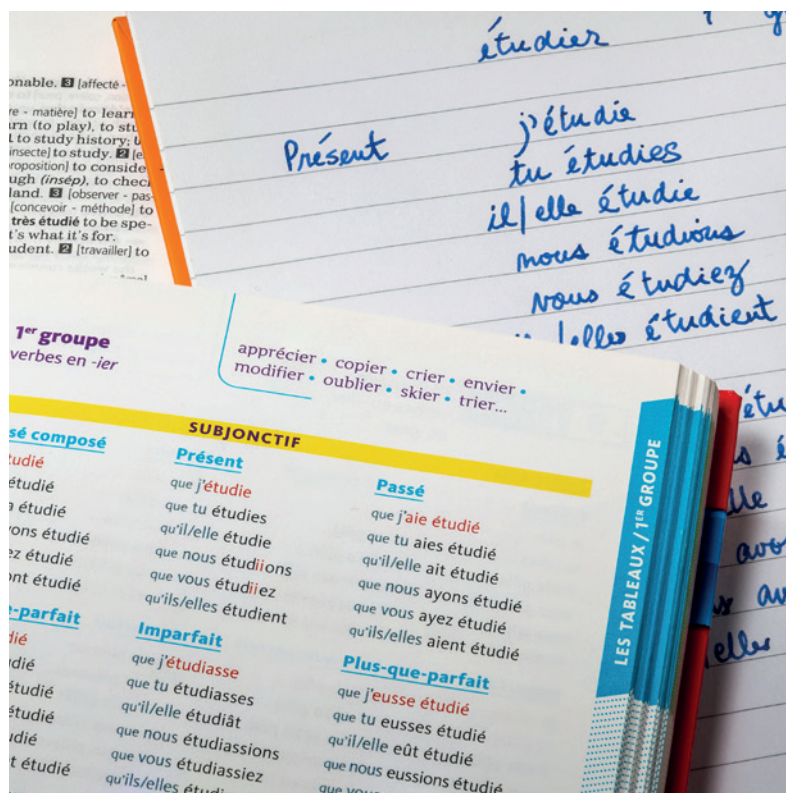 étudier
Présent j'étudie
tu étudies
il/elle étudie
nous étudions
vous étudiez
/elles étudient
étu
elle
avo
av
elles
onable. 3 [affecté -
re - matière] to lear
rn (to play), to stu
l to study history;
insecte] to study. 2 [e
roposition] to conside
ugh (insép), to chec
land. 3 [observer - pas
[concevoir - méthode] to
très étudié to be spe-
t's what it's for.
udent. 2 [travailler] to
1er groupe
verbes en -ier
apprécier • copier • crier • envier •
modifier • oublier • skier • trier...
SUBJONCTIF
sé composé
tudié
étudié
a étudié
vons étudié
ez étudié
ont étudié
e-parfait
dié
udié
étudié
étudié
udié
t étudié
Présent
que j'étudie
que tu étudies
qu'il/elle étudie
que nous étudiions
que vous étudiiez
qu'ils/elles étudient
Imparfait
que j'étudiasse
que tu étudiasses
qu'il/elle étudiât
que nous étudiassions
que vous étudiassiez
qu'ils/elles étudi
Passé
que j'aie étudié
que tu aies étudié
qu'il/elle ait étudié
que nous ayons étudié
que vous ayez étudié
qu'ils/elles aient étudié
Plus-que-parfait
que j'eusse étudié
que tu eusses étudié
qu'il/elle eût étudié
que nous eussions étudié
que vous
LES TABLEAUX / 1ER GROUPE